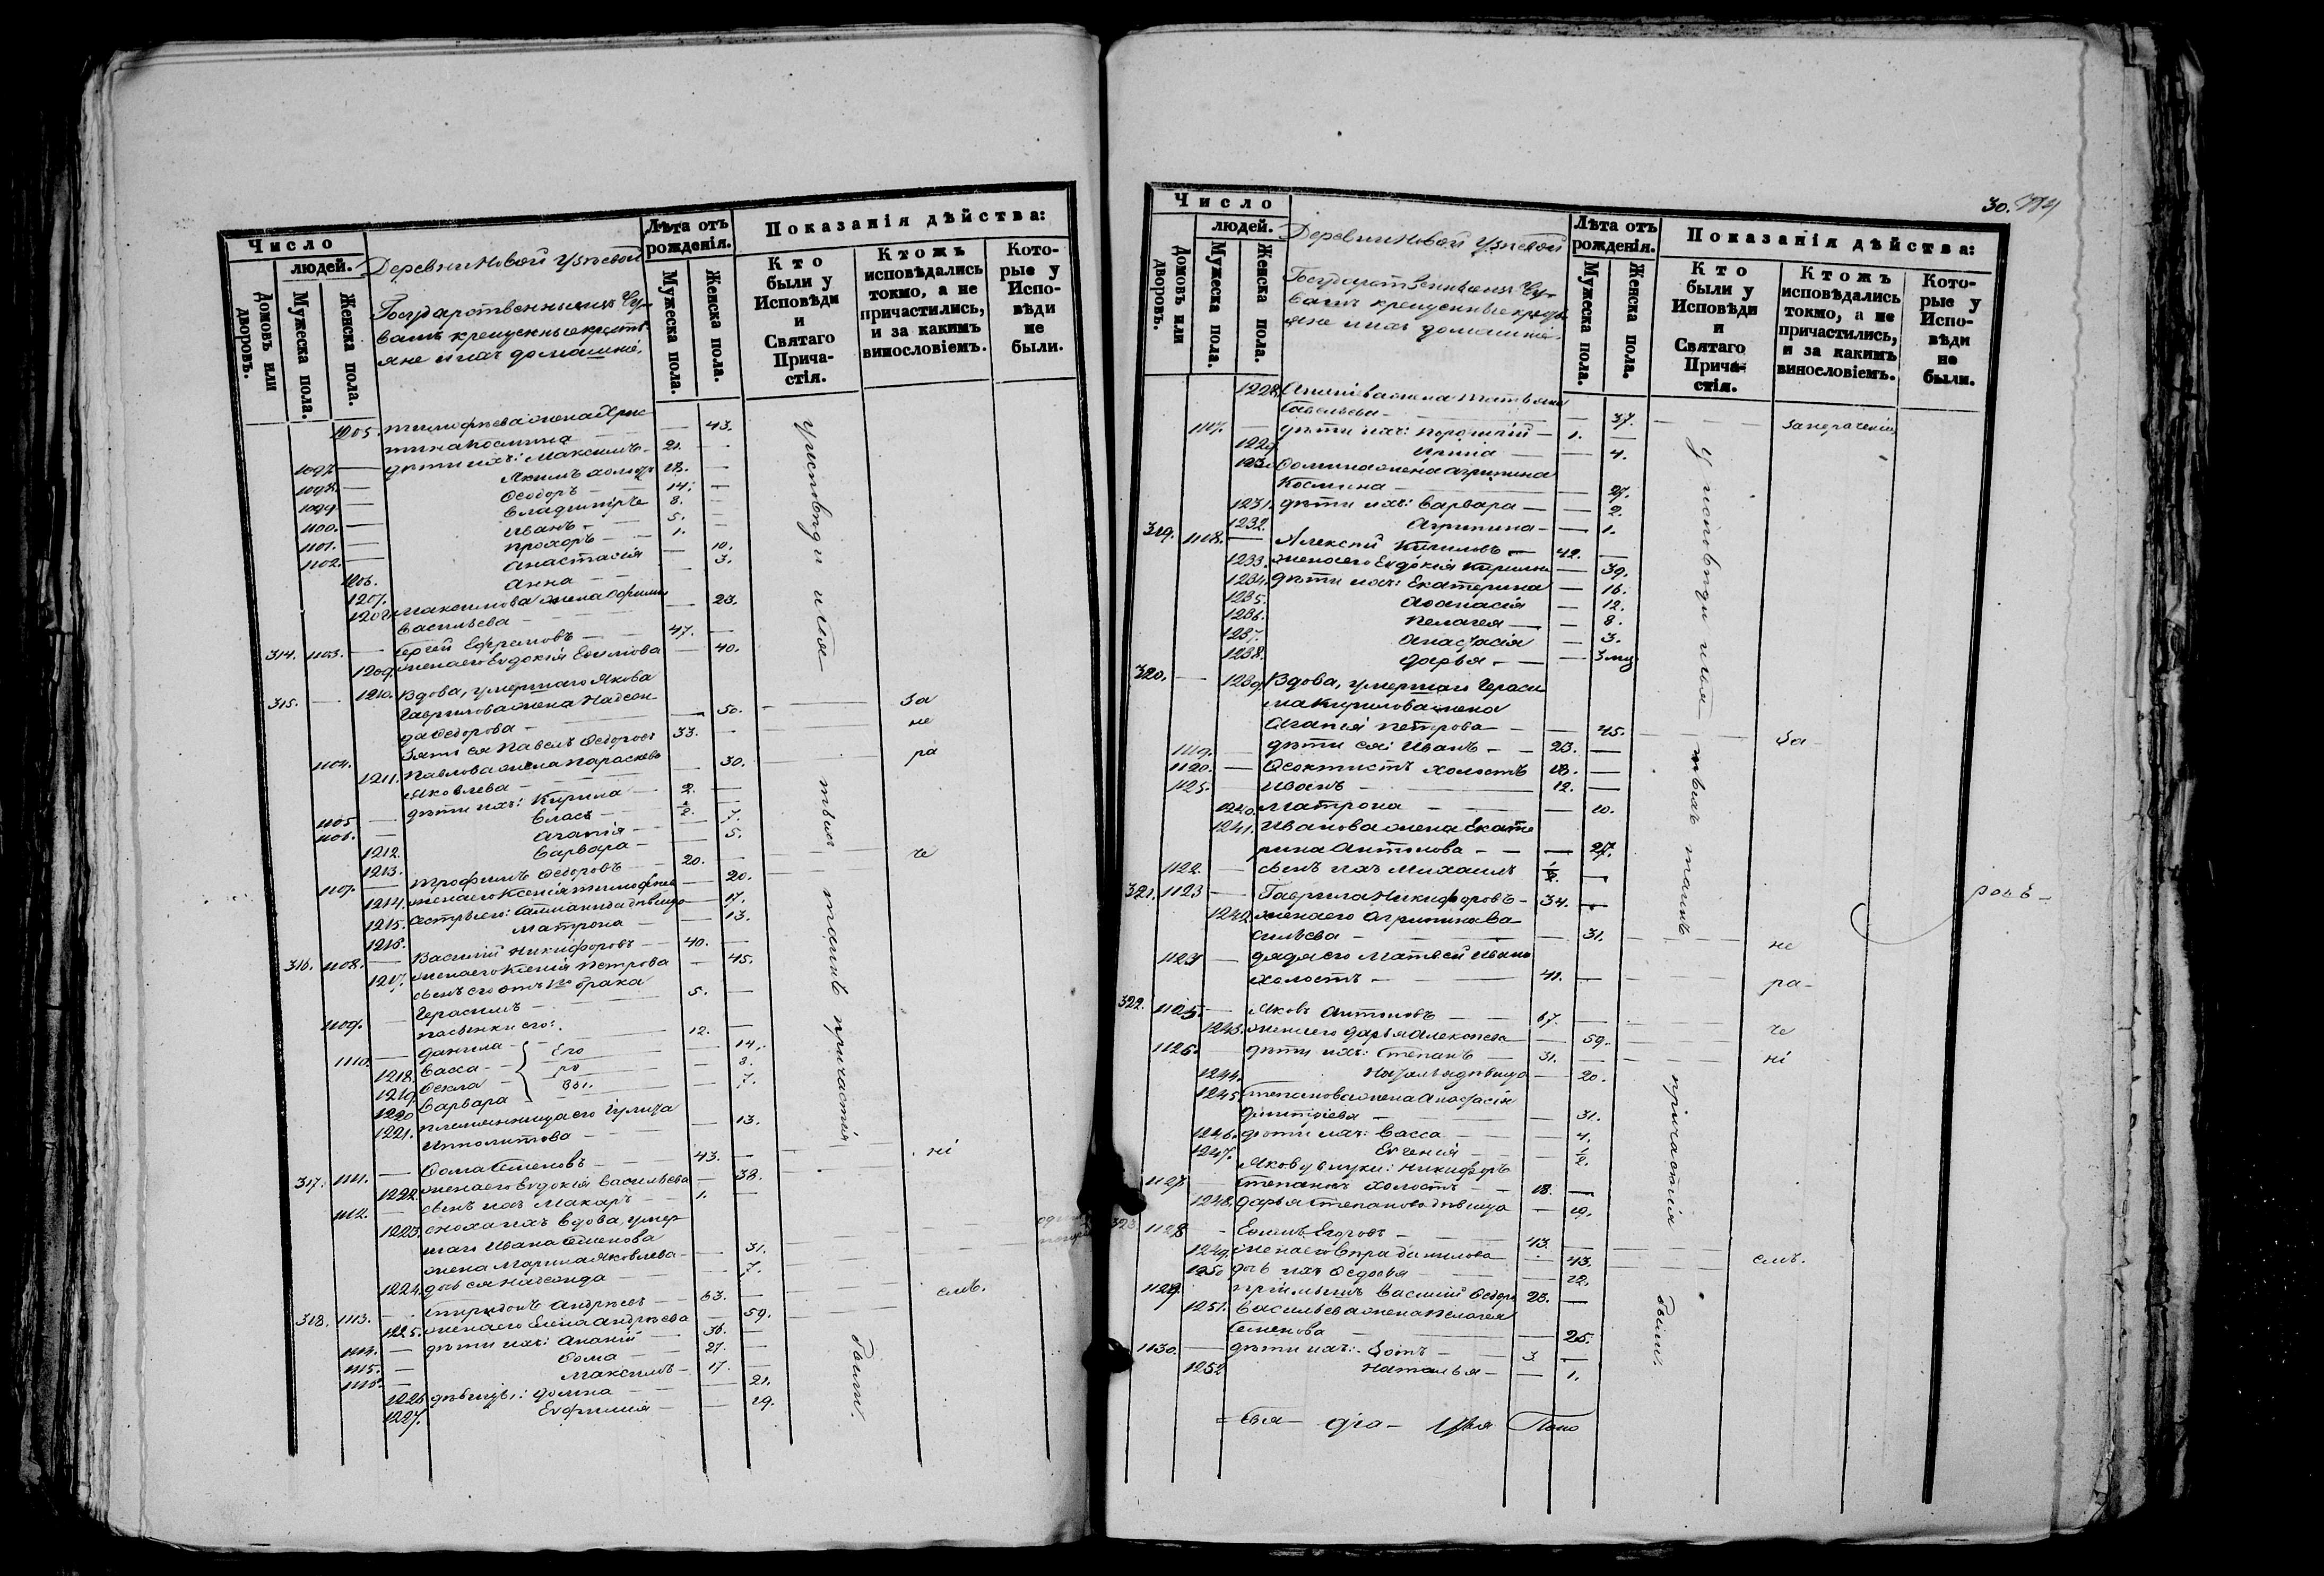 Число
людей.
Домовъ или дворовъ.
Мужеска пола.
Женска пола.
Деревни Новой Узѣевой
Государственныхъ Чу-
вашъ крещеные кресть-
яне и ихъ домашніе.
Лѣта отъ рожденія.
Мужеска пола.
Женска пола.
Показанія дѣйства:
Кто были у Исповѣди и Святаго Причастія.
Ктожъ исповѣдались токмо, а не причастились, и за какимъ винословіемъ.
Которые у Исповѣди не были.
1205. Тимофѣева жена Хрис-
тина Космина — 43.
1097. — дѣти ихъ: Максимъ — 21. —
1098. — Якимъ холостъ 18. —
1099. — Ѳеодоръ — 14. —
1100. — Владиміръ 8. —
1101. — Иванъ — 5. —
1102. — Прохоръ — 1. —
1206. Анастасія — 10.
1207. Анна — 3.
1208. Максимова жена
Васильева — 23.
314. 1103. — Сергей Ефремовъ — 47. —
1209. жена его Евдокія Ефимова — 40.
315. — 1210. Вдова, умершаго Якова
Гаврилова жена Надеж-
да Ѳедорова — 50. — За
1104. Зять ея Павелъ Ѳедоровъ 33. — не
1211. Павлова жена Параскева
Яковлева — 30. ра
1105 — дѣти ихъ: Кирила — 2. —
1106. — Власъ — ½. —
1212. Агапія — 7.
1213. Варвара — 5.
1107. — Трофимъ Ѳедоровъ — 20. — че
1214. жена его Ксенія Тимофѣева — 20.
1215. сестры его: дѣвица — 17.
1216. Матрона — 13.
316. 1108. — Василій Никифоровъ — 40. —
1217. жена его Ксенія Петрова — 45.
сынъ его отъ 1го брака
1109. — Герасимъ — 5. —
пасынки его:
1110. — Данила — 12. —
1218. Васса — 14.
1219. Ѳекла — 8.
1220 Варвара — 7.
Его
ро
вы.
1221. племянница его Іулита
Ипполитова — 13.
317. 1111. — Ѳома Семеновъ — 43. — ні
1222. жена его Евдокія Васильева — 38.
1112. — сынъ ихъ Макаръ — 1. —
1223. сноха ихъ вдова, умер-
шаго Ивана Семенова
жена Марина Яковлева — 31.
1224. дочь ея Надежда — 7.
318. 1113. — Спиридонъ Андреевъ — 63. — емъ.
1225. жена его Елена Андреева — 59.
1114. — дѣти ихъ: Ананій — 36. —
1115. — Ѳома — 27. —
1116. — Максимъ — 17. —
1226. дѣвицы: Домна — 21.
1227. Евфимія — 19.
у исповѣди и свя-
тыхъ таинъ причастія
были.
30.
Число
людей.
Домовъ или дворовъ.
Мужеска пола.
Женска пола.
Деревни Новой Узѣевой
Государственныхъ Чу-
вашъ крещеные кресть-
яне и ихъ домашніе.
Лѣта отъ рожденія.
Мужеска пола.
Женска пола.
Показанія дѣйства:
Кто были у Исповѣди и Святаго Причастія.
Ктожъ исповѣдались токмо, а не причастились, и за какимъ винословіемъ.
Которые у Исповѣди не были.
1228. Ананіева жена Татьяна
Савельева — 37. — за нераченіемъ
1117. — дѣти ихъ: — 1. —
1229. Ирина — 4.
1230. Ѳомина жена Агрипина
Космина — 27.
1231. дѣти ихъ: Варвара — 2.
1232. Агрипина — 1.
319. 1118. — Алексѣй Кириловъ — 42. —
1233. жена его Евдокія Кирилова — 39.
1234. дѣти ихъ: Екатерина — 16.
1235. Аѳанасія — 12.
1236. Пелагея — 8.
1237. Анастасія — 3.
1238. Дарья — 3 мц
320. — 1239. Вдова, умершаго Гераси-
ма Кирилова жена
Агапія Петрова — 45. За
1119. — дѣти ея: Иванъ — 23. —
1120. — Ѳеоктистъ холостъ 18. —
1125. — Иванъ — 12. —
1240. Матрона — 10.
1241. Иванова жена Екате-
рина Антонова — 27.
1122. — сынъ ихъ Михаилъ ½. —
321. 1123 — Гаврила Никифоровъ — 34. —
1242. жена его Агрипина Ва-
сильева — 31. — не
1124 — дядя его Матвей Иванов
холостъ — 41. — ра-
322. 1125. — Яковъ Антоновъ — 67. —
1243. жена его Дарья Алексѣева — 59. че
1126. — дѣти ихъ: Степанъ — 31. — ні
1244. Наталья дѣвица — 20.
1245. Степанова жена Анастасія
Дмитріева — 31.
1246. дѣти ихъ: Васса — 4.
1247. Евгенія — ½.
Якову внуки: Никифоръ
1127. Степановъ холостъ — 18. —
1248. Дарья Степанова дѣвица — 19.
323. 1128 — Ефимъ Егоровъ — 43. —
1249. жена его Вѣра Данилова — 43. емъ.
1250 дочь ихъ Ѳедосья — 12.
1129. пріймышъ Василій Ѳедоровъ 23. —
1251. Васильева жена Пелагея
Семенова — 25.
1130. — дѣти ихъ: Зотъ — 3. —
1252 Наталья — 1.
у исповѣди и свя-
тыхъ таинъ
причастія
были.